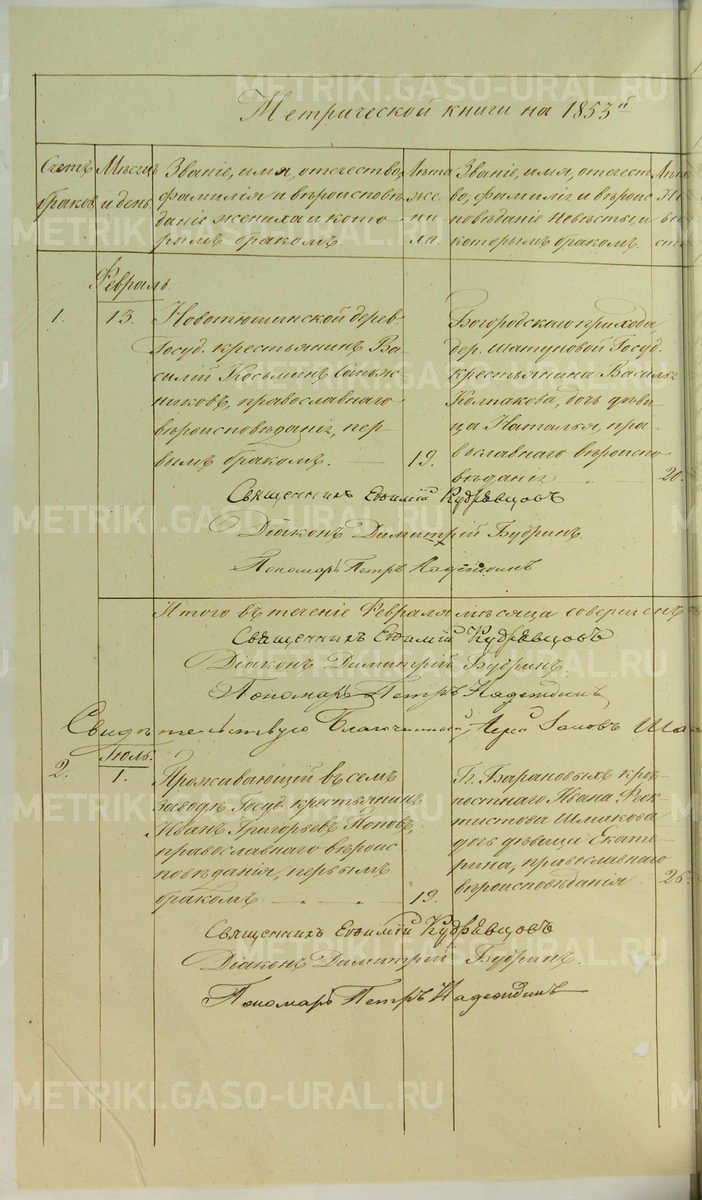 Метрической книги на 1853й
Счетъ браковъ.
Мѣсяцъ и день.
Званіе, имя, отечество,
фамилія и вѣроисповѣ-
даніе жениха и кото-
рымъ бракомъ.
Лѣта
же-
ни-
ха.
Званіе, имя, отечест-
во, фамилія и вѣроис-
повѣданіе невѣсты, и
которымъ бракомъ.
Февраль.
1.
13.
Новотюшинской дерев:
Госуд. крестьянинъ Ва-
силій Косьминъ Сапож-
никовъ, православнаго
вѣроисповѣданія, пер-
вымъ бракомъ.
19.
Богородскаго прихода
дер. Шатуновой Госуд.
крестьянина Василья
Колпакова, дочь дѣви-
ца Наталья, пра-
вославнаго вѣроиспо-
вѣданія
20.
Священникъ Евѳимій Кудрявцовъ
Діаконъ Димитрій Бубринъ.
Пономарь Петръ Надеждинъ
Итого въ теченіе Февраля мѣсяца совершен
Священникъ Евѳимій Кудрявцовъ
Діаконъ Димитрій Бубринъ.
Пономарь Петръ Надеждинъ
Свидѣтельствую Благочинный, Іерей
Іюль.
2.
1.
Проживающій въ семъ
заводѣ Госуд. крестьянинъ
Иванъ Григорьевъ Поповъ,
православнаго вѣроис-
повѣданія, первымъ
бракомъ
19.
Гг. Барановыхъ крѣ-
постнаго Ивана Ѳеок-
тистова Шмакова
дочь дѣвица Екате-
рина, православнаго
вѣроисповѣданія
26.
Священникъ Евѳимій Кудрявцовъ
Діаконъ Димитрій Бубринъ.
Пономарь Петръ Надеждинъ
METRIKI.GASO-URAL.RU